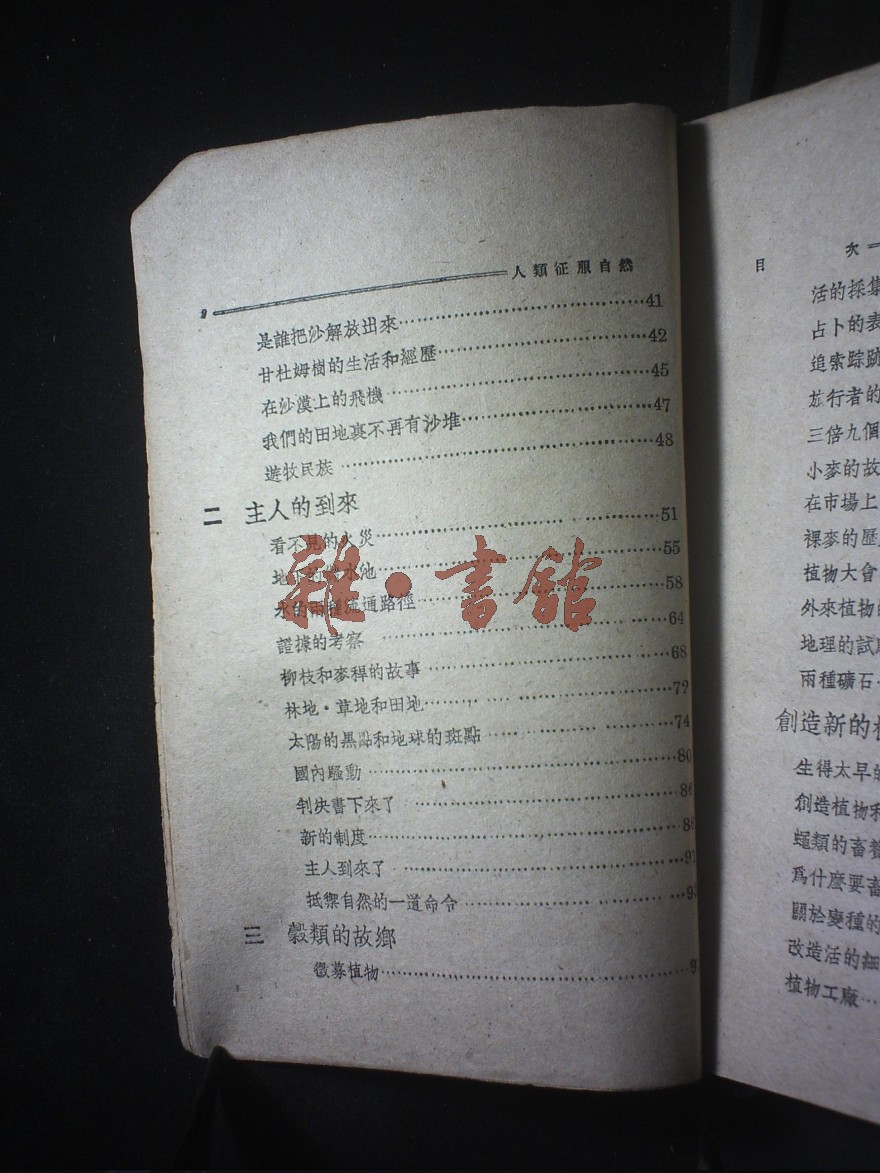 2 人類征服自然
是誰把沙解放出來……41
甘杜姆樹的生活和經歷……42
在沙漠上的飛機……45
我們的田地裏不再有沙堆……47
遊牧民族……48
二 主人的到來
看不見的火災……51
地下的 水池……55
水的兩種流通路徑……58
證據的考察……64
柳枝和麥稈的故事……68
林地·草地和田地……72
太陽的黑點和地球的斑點……74
國內騷動……80
判決書下來了……86
新的制度……88
主人到來了……91
抵禦自然的一道命令……9
三 穀類的故鄉
徵募植物……9
雜·書館
目 次
活的採集
占卜的表
追索踪跡
旅行者的
三倍九個
小麥的故
在市場上
裸麥的歷
植物大會
外來植物
地理的試
兩種礦石
創造新的植
生得太早的
創造植物和
蠅類的畜養
爲什麼要畜
關於變種的
改造活的細
植物工廠……